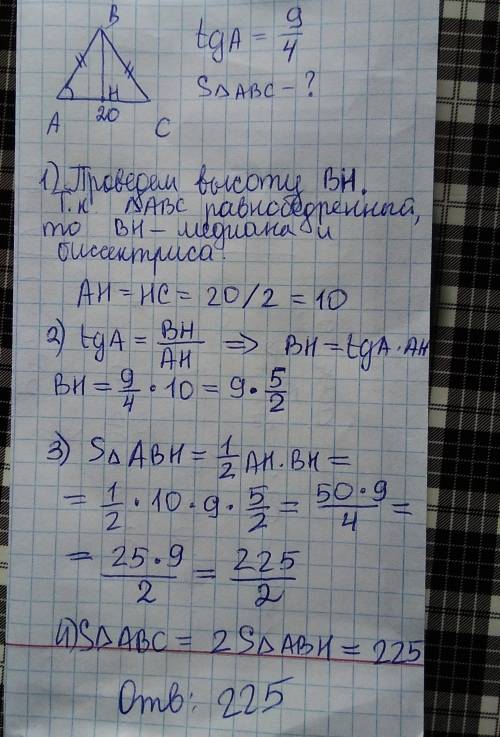 B
tgA = 9/4
S△ABC - ?
A 20 H C
1) Проведем высоту BH.
Т.к △ABC равнобедренный,
то BH – медиана и
биссектриса.
AH = HC = 20/2 = 10
2) tgA = BH/AH ⇒ BH = tgA · AH
BH = 9/4 · 10 = 9 · 5/2
3) S△ABH = 1/2 AH · BH =
= 1/2 · 10 · 9 · 5/2 = 50·9/4 =
= 25·9/2 = 225/2
4) S△ABC = 2S△ABH = 225
Отв: 225